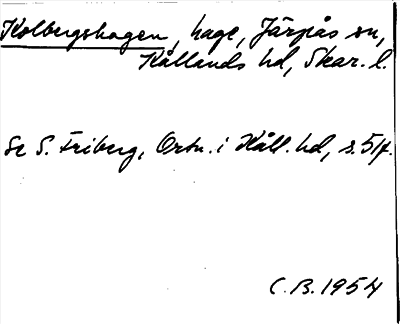 Kolbergshagen, hage, Järpås sn,
Kållands hd, Skar. l.
Se S. Friberg, Ortn. i Kåll. hd, s. 51f.
C.B. 1954